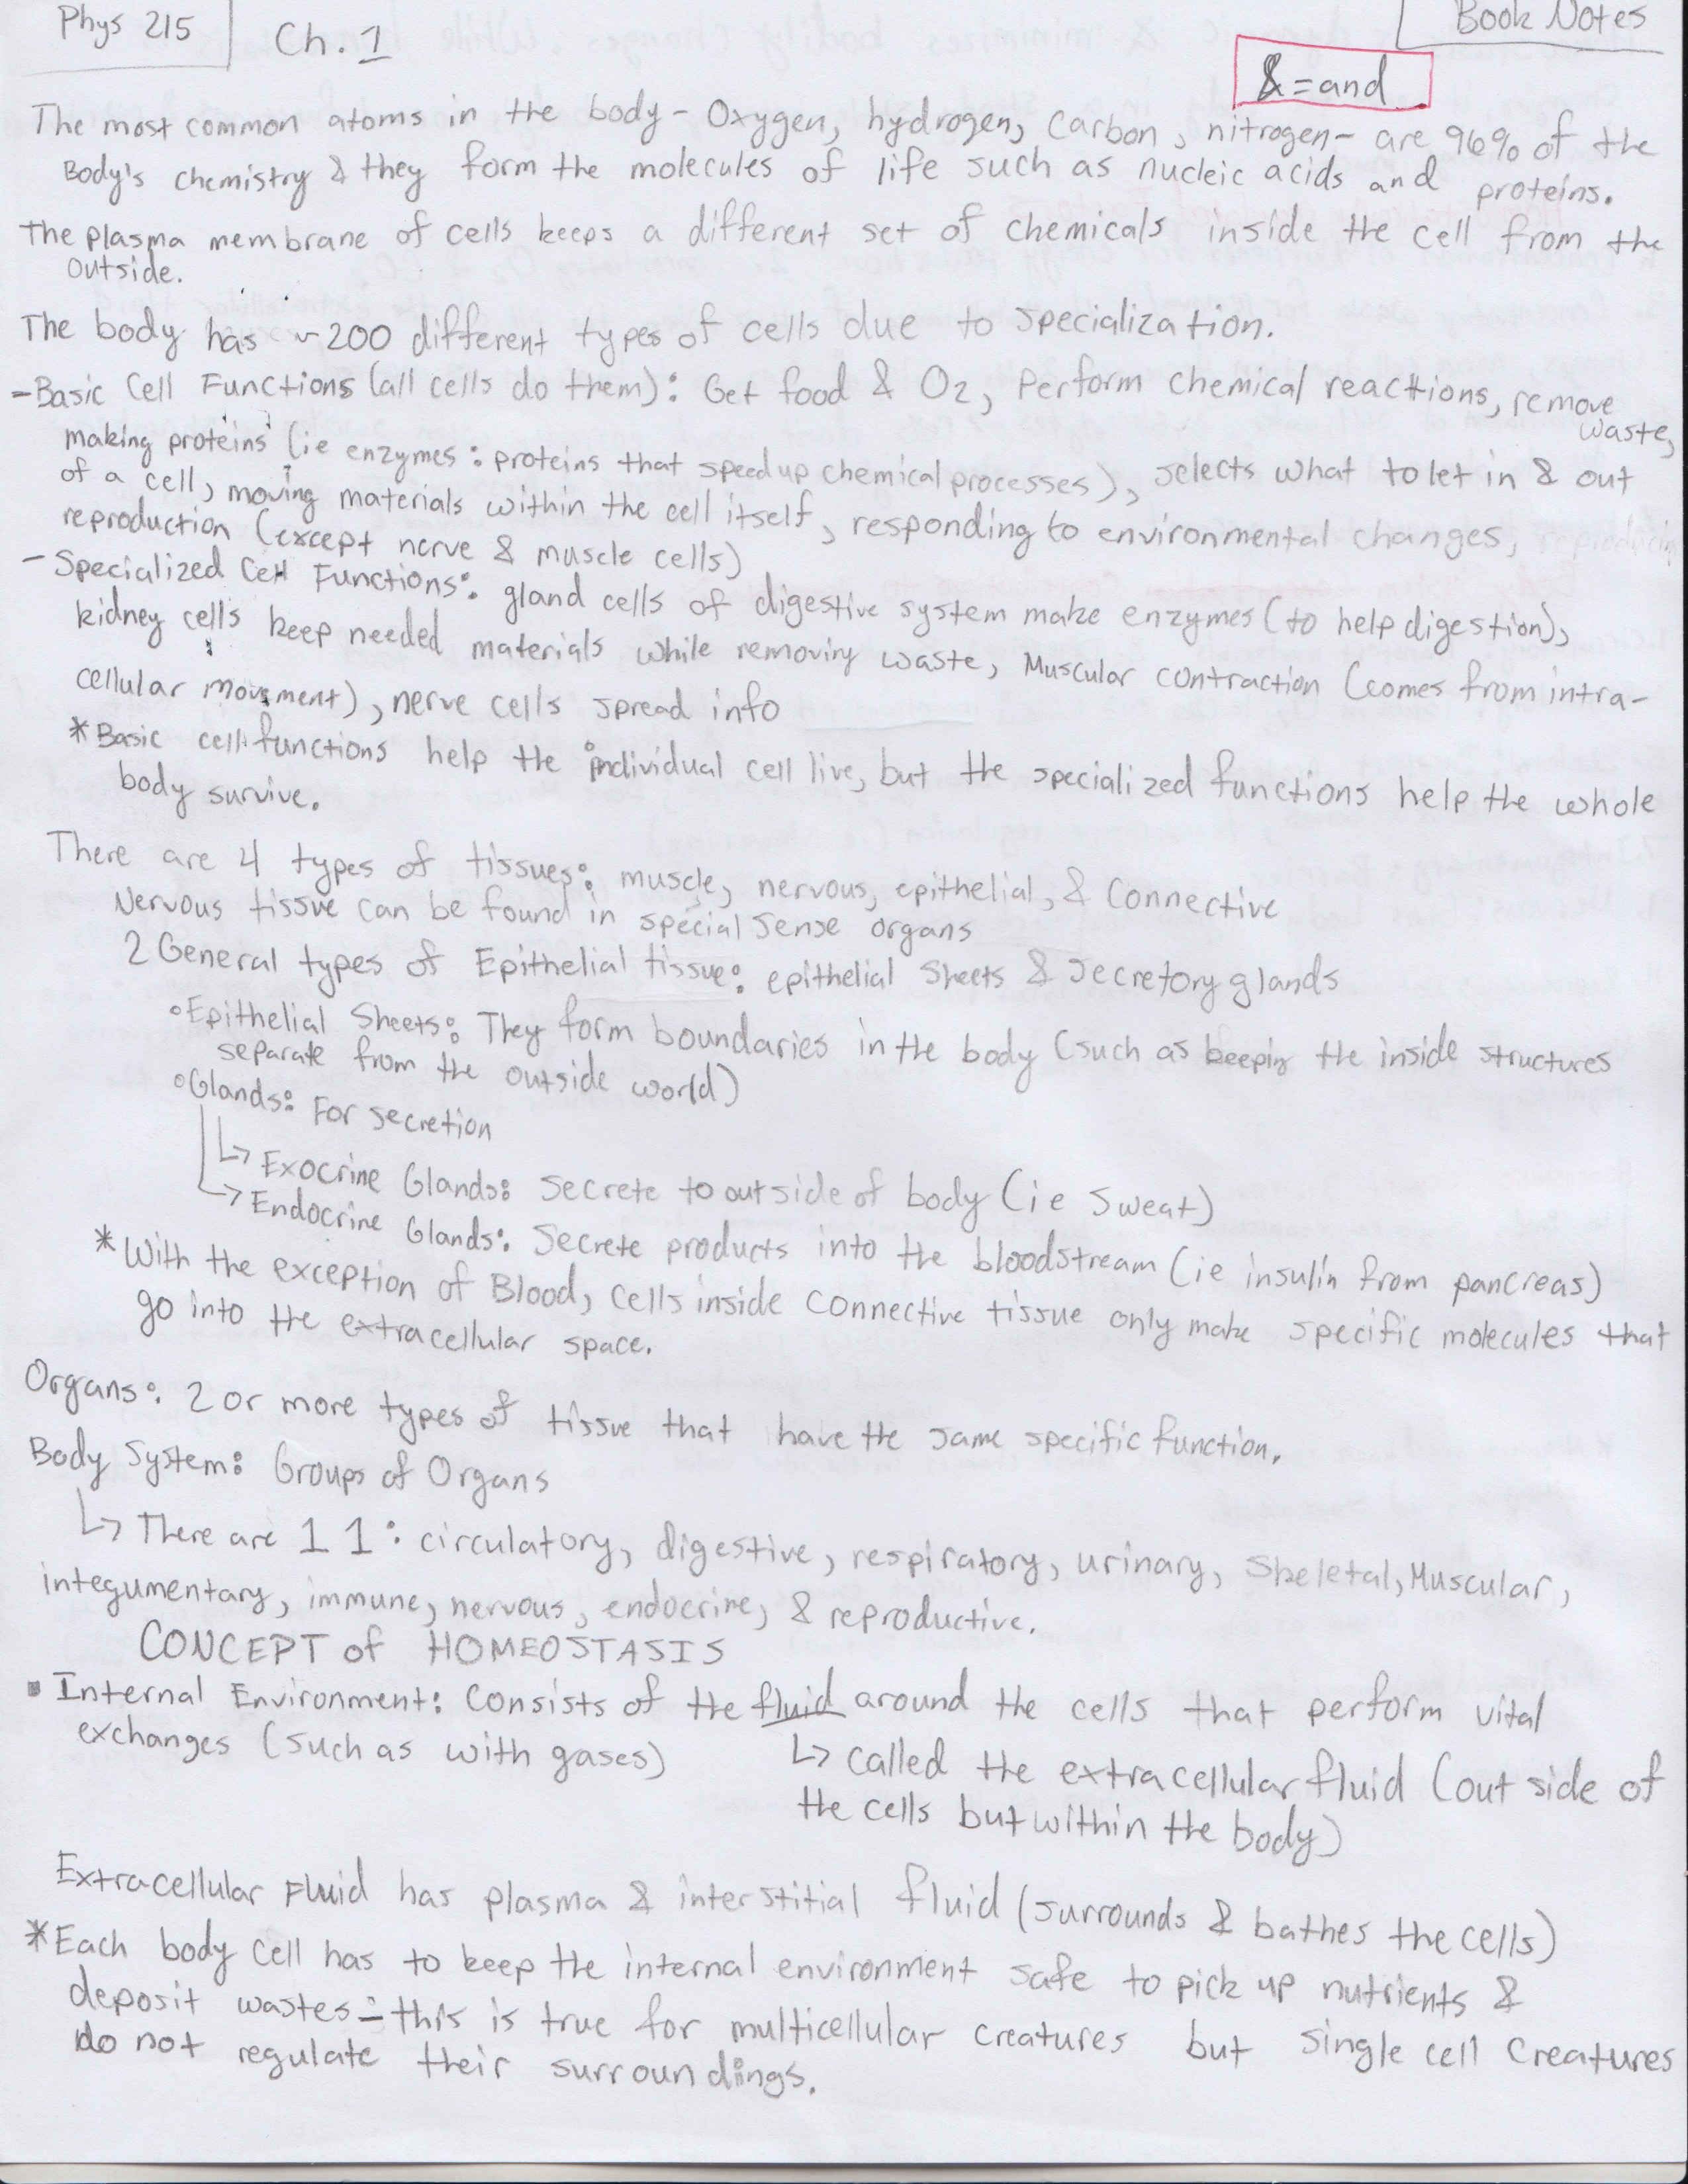 Phys 215
Ch. 1
Book Notes
& = and
The most common atoms in the body - Oxygen, hydrogen, Carbon, nitrogen - are 96% of the
Body's chemistry & they form the molecules of life such as nucleic acids and proteins.
The plasma membrane of cells keeps a different set of chemicals inside the cell from the
outside.
The body has ~200 different types of cells due to specialization.
- Basic Cell Functions (all cells do them): Get food & O2, Perform chemical reactions, remove
waste,
making proteins (ie enzymes: proteins that speed up chemical processes), selects what to let in & out
of a cell, moving materials within the cell itself, responding to environmental changes, reproducing
reproduction (except nerve & muscle cells)
- Specialized Cell Functions: gland cells of digestive system make enzymes (to help digestion),
kidney cells keep needed materials while removing waste, Muscular contraction (comes from intra-
cellular movement), nerve cells spread info
* Basic cell functions help the individual cell live, but the specialized functions help the whole
body survive.
There are 4 types of tissues: muscle, nervous, epithelial, & Connective
Nervous tissue can be found in special sense organs
2 General types of Epithelial tissue: epithelial Sheets & secretory glands
◦ Epithelial Sheets: They form boundaries in the body (such as keeping the inside structures
separate from the outside world)
◦ Glands: For secretion
↳ Exocrine Glands: Secrete to outside of body (ie sweat)
↳ Endocrine Glands: Secrete products into the bloodstream (ie insulin from pancreas)
* With the exception of Blood, cells inside connective tissue only make specific molecules that
go into the extracellular space.
Organs: 2 or more types of tissue that have the same specific function.
Body System: Groups of Organs
↳ There are 11: circulatory, digestive, respiratory, urinary, Skeletal, Muscular,
integumentary, immune, nervous, endocrine, & reproductive.
CONCEPT of HOMEOSTASIS
▪ Internal Environment: Consists of the fluid around the cells that perform vital
exchanges (such as with gases)
↳ called the extracellular fluid (outside of
the cells but within the body)
Extracellular Fluid has plasma & interstitial fluid (surrounds & bathes the cells)
* Each body cell has to keep the internal environment safe to pick up nutrients &
deposit wastes - this is true for multicellular creatures but single cell creatures
do not regulate their surroundings.